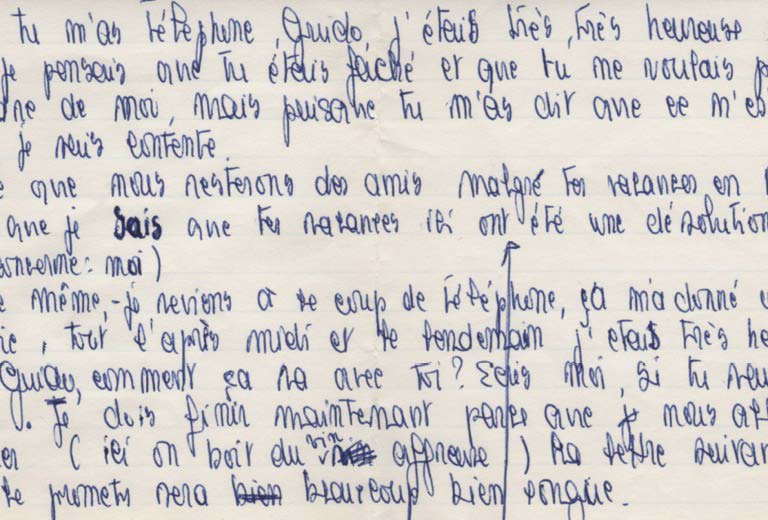 tu m'as téléphone, Guido, j'étais très, très heureuse
je pensais que tu étais fâché et que tu me voulais p
ne de moi, mais puisque tu m'as dit que ce n'es
je suis contente.
e que nous resterons des amis malgré tes vacances en
que je sais que tes vacances ici ont été une désolution
concerne: moi)
e même, - je reviens à ce coup de téléphone, ça m'a donné
ie, tout l'après midi et le lendemain j'etais très he
Guido, comment ça va avec toi? Ecris moi, si tu veu
. Je dois finir maintenant parce que je nous all
er (ici on boit du vin affreuse) La lettre suivan
te promets sera beaucoup bien longue.